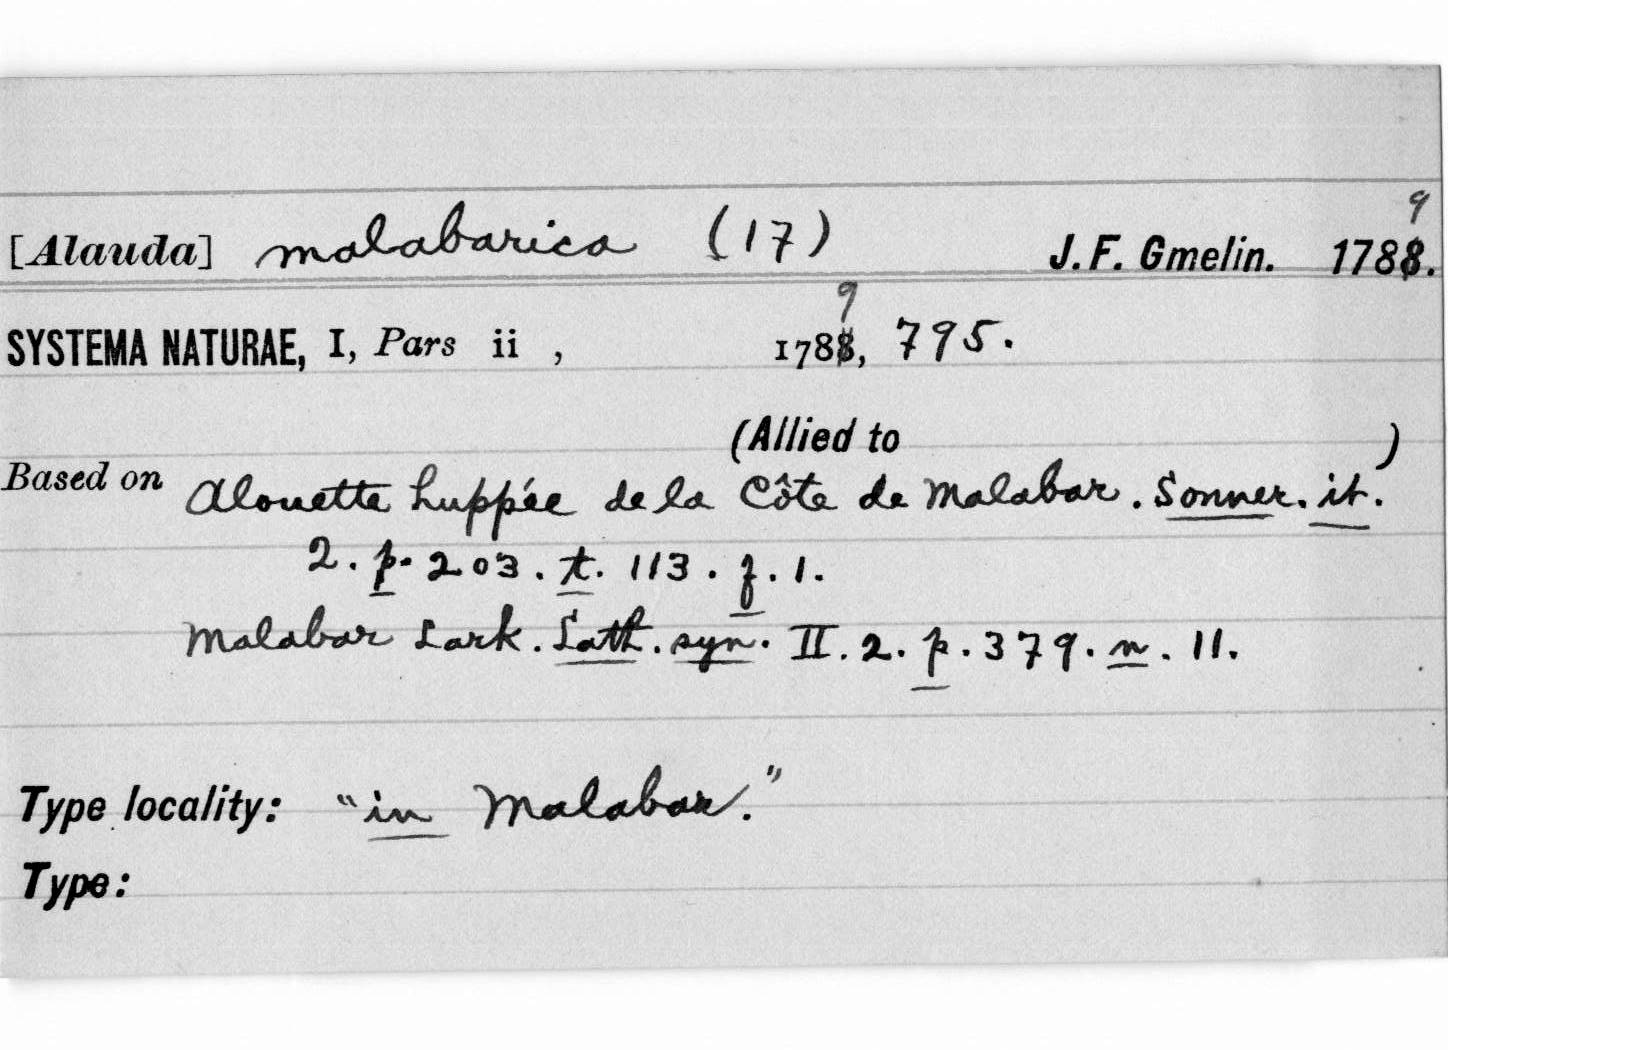 [Alauda] malabarica (17) J. F. Gmelin. 1789.
SYSTEMA NATURAE, I, Pars ii , 1789, 795.
(Allied to )
Based on Alouette huppée de la Côte de Malabar. Sonner. it.
2. p. 203. t. 113. f. 1.
Malabar Lark. Lath. syn. II. 2. p. 379. n. 11.
Type locality: "in Malabar."
Type: